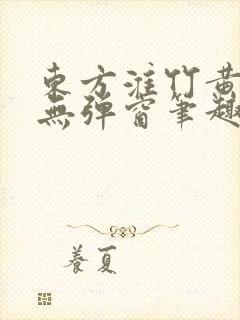 東方淮竹黃
無彈窗筆趣
養夏